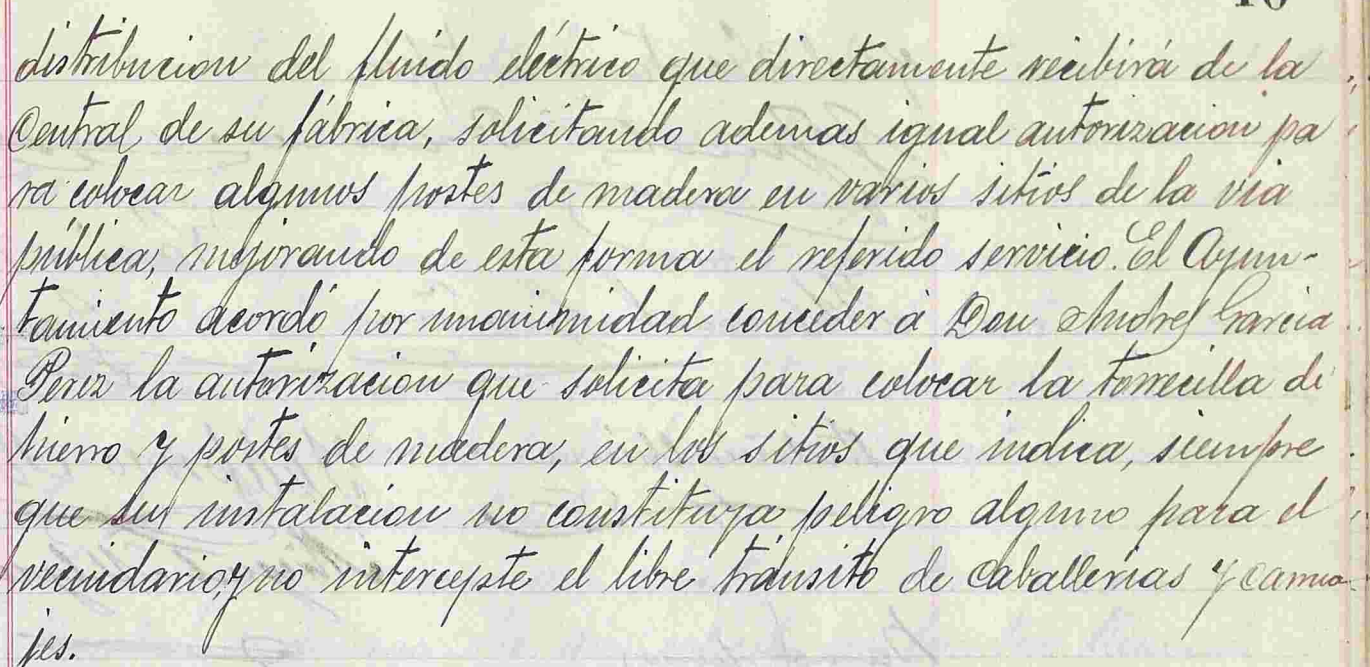 distribucion del fluido eléctrico que directamente recibirá de la
Central de su fábrica, solicitando ademas igual autorizacion pa
ra colocar algunos postes de madera en varios sitios de la via
pública, mejorando de esta forma el referido servicio. El Ayun-
tamiento acordó por unanimidad conceder á Don Andres Garcia
Perez la autorizacion que solicita para colocar la torrecilla de
hierro y postes de madera, en los sitios que indica, siempre
que su instalacion no constituya peligro alguno para el
vecindario, y no intercepte el libre tránsito de caballerias y carrua-
jes.